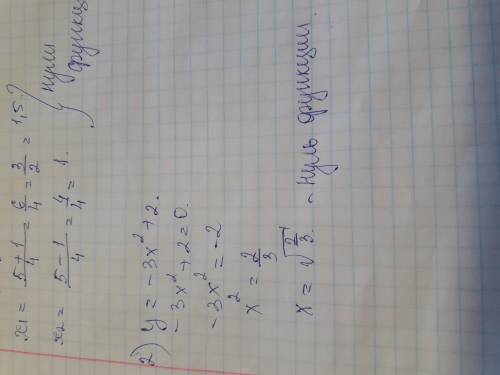 x₁ = (5+1)/4 = 6/4 = 3/2 = 1,5.
x₂ = (5-1)/4 = 4/4 = 1.
} нули
функц
2) y = -3x² + 2.
-3x² + 2 = 0.
-3x² = -2
x² = 2/3
x = √(2/3) - нуль функции